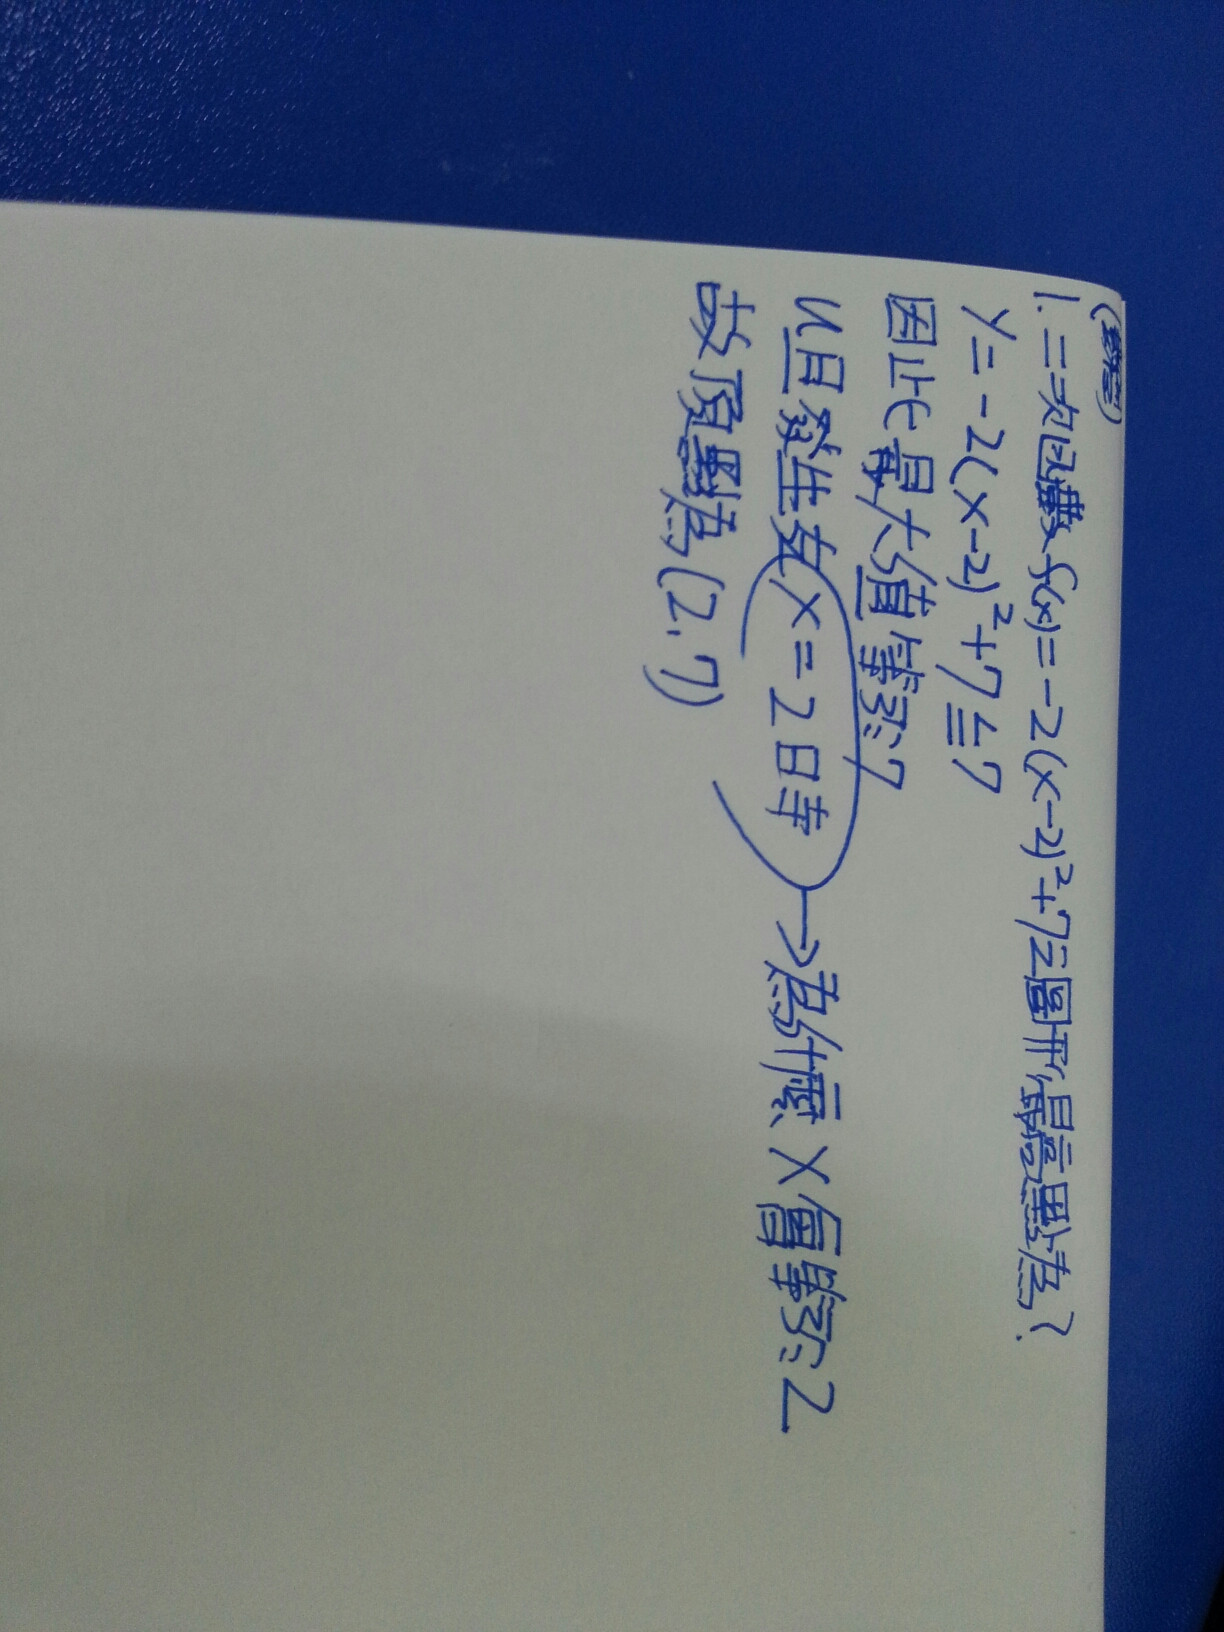 1. 二次函數 f(x)=-2(x-2)²+7之圖形最高點為?
y=-2(x-2)²+7≦7
因此最大值等於7
且發生在x=2時→為什麼x會等於2
故頂點為(2,7)